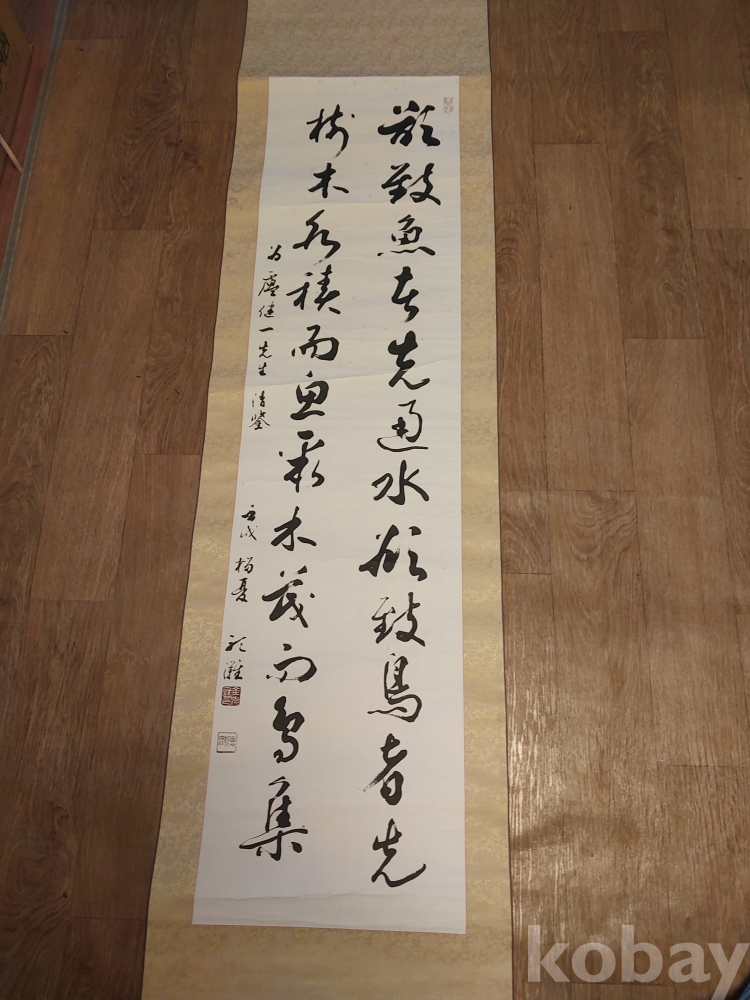 欲致魚者先通水欲致鳥者先
樹木水積而魚聚木茂而鳥集
為盧健一先生清鑒
壬戌 榴夏
kobay